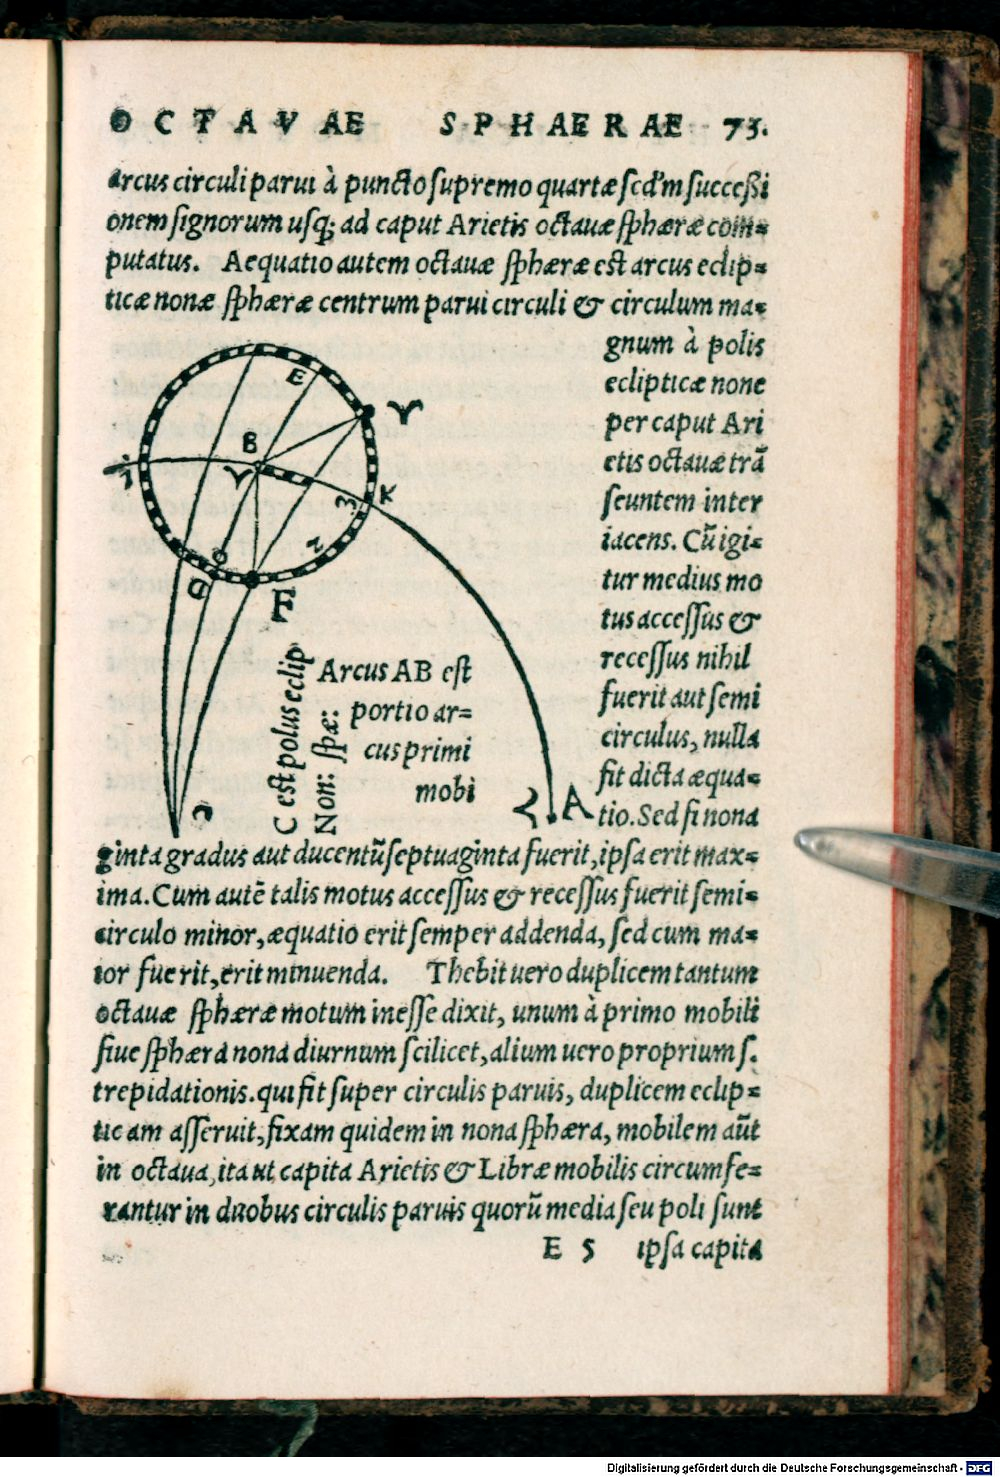 OCTAVAE SPHAERAE 73.
arcus circuli parui à puncto supremo quartæ secd'm successi
onem signorum usq; ad caput Arietis octauæ sphæræ com=
putatus. Aequatio autem octauæ sphæræ est arcus eclip=
ticæ nonæ sphæræ centrum parui circuli & circulum ma=
gnum à polis
eclipticæ none
per caput Ari
etis octauæ trā
seuntem inter
iacens. Cū igi=
tur medius mo
tus accessus &
recessus nihil
fuerit aut semi
circulus, nulla
fit dicta æqua=
tio. Sed si nona
E
B
♈
♈
K
1
3
2
O
D
F
C
A
C est polus eclip
Non: spæ:
Arcus AB est
portio ar=
cus primi
mobi
ginta gradus aut ducentū septuaginta fuerit, ipsa erit max=
ima. Cum autē talis motus accessus & recessus fuerit semi=
circulo minor, æquatio erit semper addenda, sed cum ma=
ior fuerit, erit minuenda. Thebit uero duplicem tantum
octauæ sphæræ motum inesse dixit, unum à primo mobili
siue sphæra nona diurnum scilicet, alium uero proprium s.
trepidationis. qui fit super circulis paruis, duplicem eclip=
ticam asseruit, fixam quidem in nona sphæra, mobilem aūt
in octaua, ita ut capita Arietis & Libræ mobilis circumfe=
rantur in duobus circulis paruis quorū media seu poli sunt
E 5 ipsa capita
Digitalisierung gefördert durch die Deutsche Forschungsgemeinschaft - DFG